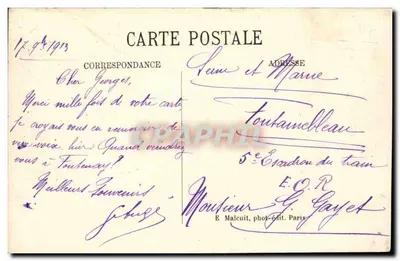 CARTE POSTALE
17 9bre 1913
CORRESPONDANCE
ADRESSE
Cher Georges,
Merci mille fois de votre carte
je croyais vous en
hier Quand viendrez
vous à Fontenay?
Meilleurs Souvenirs
Seine et Marne
Fontainebleau
5e Escadron du train
E.O.R
Monsieur G. Gayet
E Malcuit, phot-édit. Paris